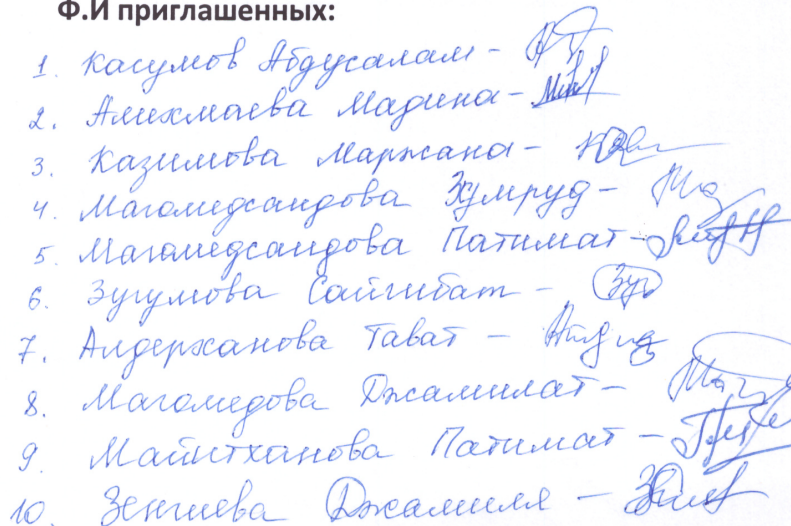 Ф.И приглашенных:
1. Касумов Абдусалам -
2. Алихмаева Мадина -
3. Казимова Маржана -
4. Магомедсаидова Зумруд -
5. Магомедсаидова Патимат -
6. Зугумова Сайгибат -
7. Алдерханова Тават -
8. Магомедова Джамилат -
9. Майитханова Патимат -
10. Зенгиева Джамиля -